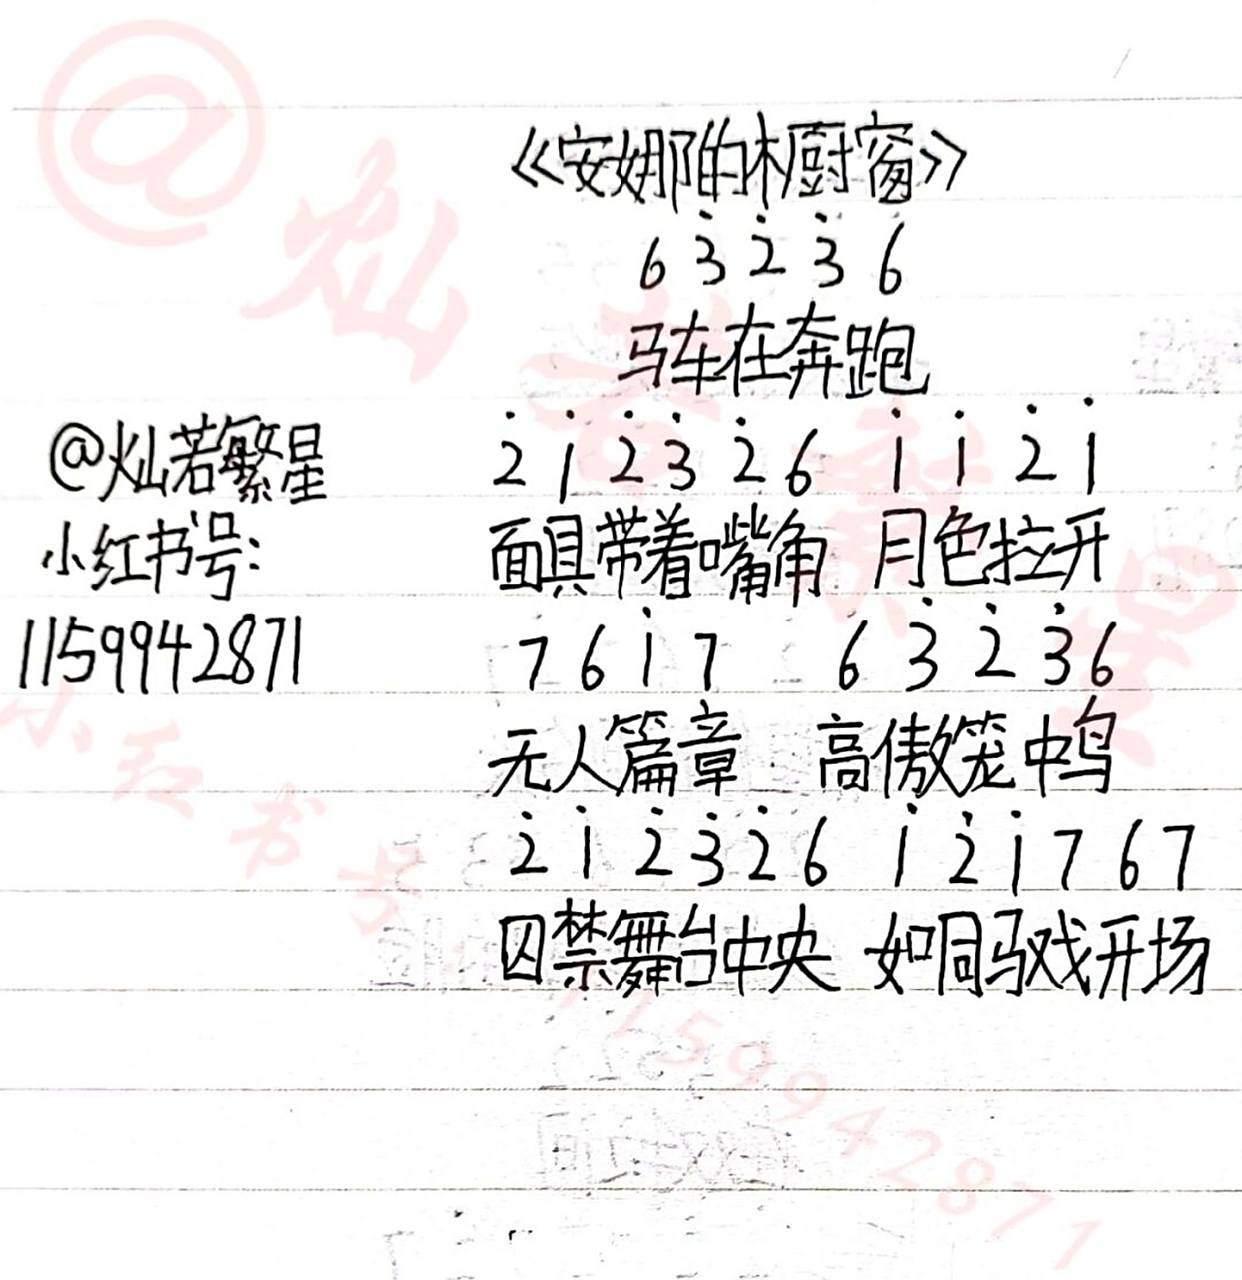 《安娜的橱窗》
6 3̇ 2̇ 3̇ 6
马车在奔跑
2̇ 1̇ 2̇ 3̇ 2̇ 6 1̇ 1̇ 2̇ 1̇
面具带着嘴角 月色拉开
7 6 1̇ 7 6 3̇ 2̇ 3̇ 6
无人篇章 高傲笼中鸟
2̇ 1̇ 2̇ 3̇ 2̇ 6 1̇ 2̇ 1̇ 7 6 7
囚禁舞台中央 如同马戏开场
@灿若繁星
小红书号:
1159942871
@灿若繁星
小红书号:1159942871